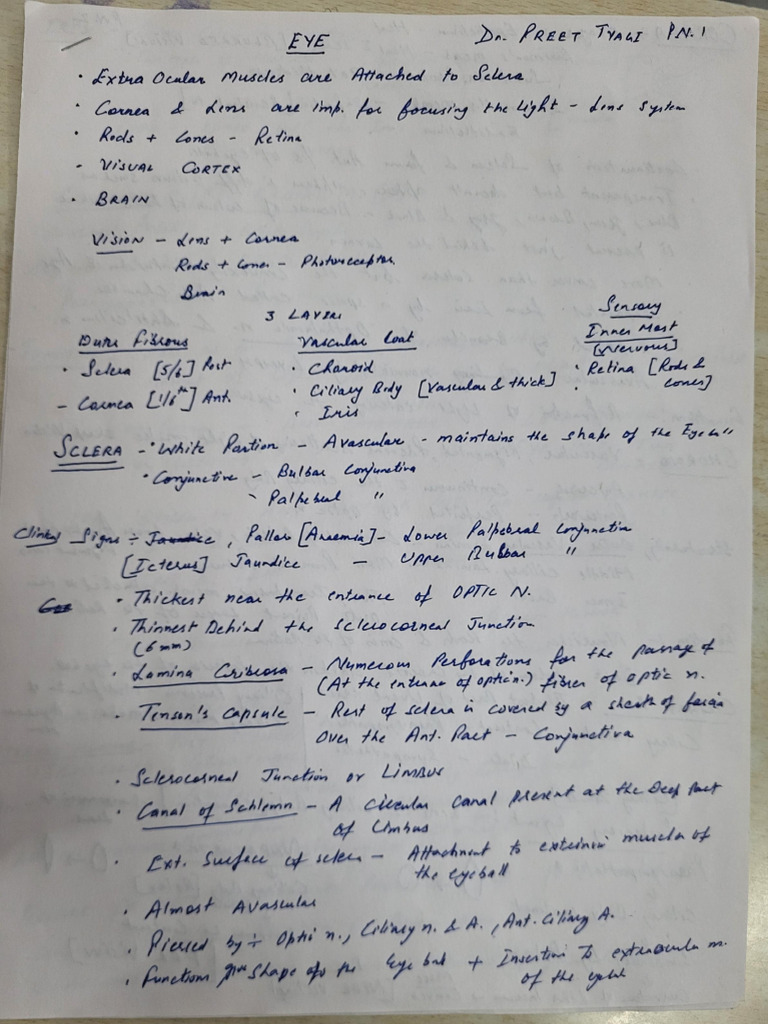 EYE Dr. PREET TYAGI P.N. 1
• Extra Ocular Muscles are Attached to Sclera
• Cornea & Lens are imp. for focusing the Light - Lens System
• Rods + Cones - Retina
- VISUAL CORTEX
• BRAIN
Vision - Lens + Cornea
Rods + Cones - Photoreceptor
Brain
3 LAYERS
Sensory
Outer Fibrous Vascular Coat Inner Most
[Nervous]
• Sclera [5/6] Post • Choroid • Retina [Rods & Cones]
- Cornea [1/6th] Ant. • Ciliary Body [Vascular & thick]
• Iris
SCLERA - • White Portion - Avascular - maintains the shape of the Eyeball
• Conjunctive - Bulbar Conjunctiva
- Palpebral "
Clinical Signs ÷ Jaundice, Pallor [Anaemia] - Lower Palpebral Conjunctiva
[Icterus] Jaundice - Upper Bulbar "
• Thickest near the entrance of OPTIC N.
• Thinnest Behind the Sclerocorneal Junction
(6mm)
• Lamina Cribrosa - Numerous Perforations for the passage of
(At the entrance of optic n.) fibres of optic n.
• Tenson's Capsule - Rest of sclera is covered by a sheath of fascia
Over the Ant. Part - Conjunctiva
• Sclerocorneal Junction or LIMBUS
• Canal of Schlemn - A circular canal present at the Deep Part
of Limbus
• Ext. Surface of sclera - Attachment to extrinsic muscles of
the eyeball
• Almost Avascular
• Pierced by ÷ Optic n., Ciliary n. & A., Ant. Ciliary A.
• Functions Shape the Eye ball + Insertion To extraocular m.
of the eyeball